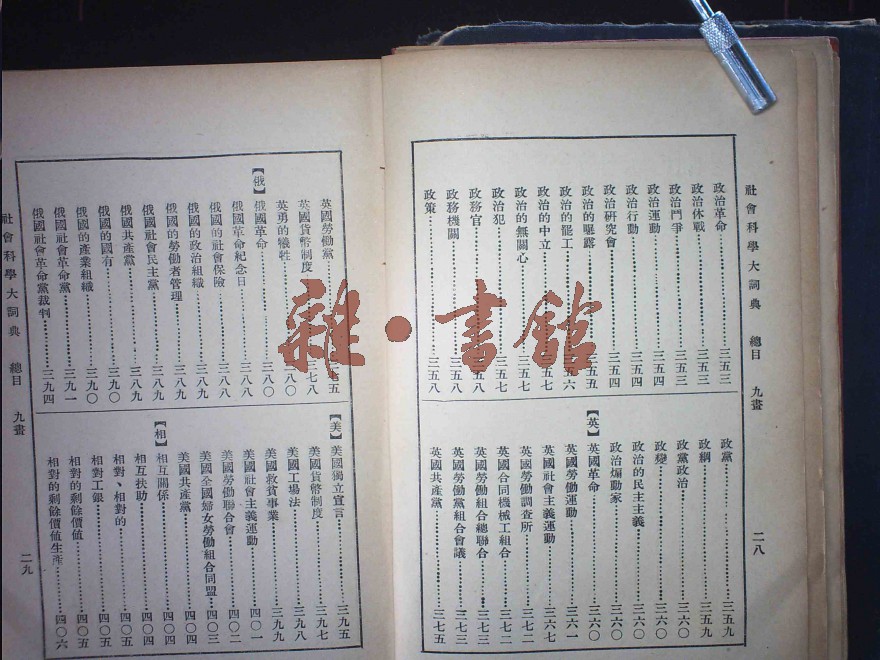 社會科學大詞典 總目 九畫 二八
政治革命……三五三
政治休戰……三五三
政治鬥爭……三五三
政治運動……三五四
政治行動……三五四
政治硏究會……三五四
政治的曝露……三五五
政治的罷工……三五六
政治的中立……三五七
政治的無關心……三五七
政治犯……三五七
政務官……三五八
政務機關……三五八
政策……三五八
政黨……三五九
政綱……三五九
政黨政治……三六〇
政變……三六〇
政治的民主主義……三六〇
政治煽動家……三六〇
【英】英國革命……三六〇
英國勞働運動……三六一
英國社會主義運動……三六七
英國勞働調查所……三七二
英國合同機械工組合……三七二
英國勞働組合總聯合……三七三
英國勞働黨組合會議……三七三
英國共產黨……三七五
英國勞働黨……七五
英國貨幣制度……七八
英勇的犧牲……八〇
【俄】俄國革命……三八〇
俄國革命紀念日……三八八
俄國的社會保險……三八八
俄國的政治組織……三八九
俄國的勞働者管理……三八九
俄國社會民主黨……三八九
俄國共產黨……三八九
俄國的國有……三九〇
俄國的產業組織……三九〇
俄國社會革命黨……三九一
俄國社會革命黨裁判……三九四
【美】美國獨立宣言……三九五
美國貨幣制度……三九七
美國工場法……三九八
美國救貧事業……三九九
美國社會主義運動……四〇一
美國勞働聯合會……四〇二
美國全國婦女勞働組合同盟……四〇三
美國共產黨……四〇四
【相】相互關係……四〇四
相互扶助……四〇四
相對、相對的……四〇五
相對工銀……四〇五
相對的剩餘價値……四〇五
相對的剩餘價値生產……四〇六
社會科學大詞典 總目 九畫 二九
雜·書館